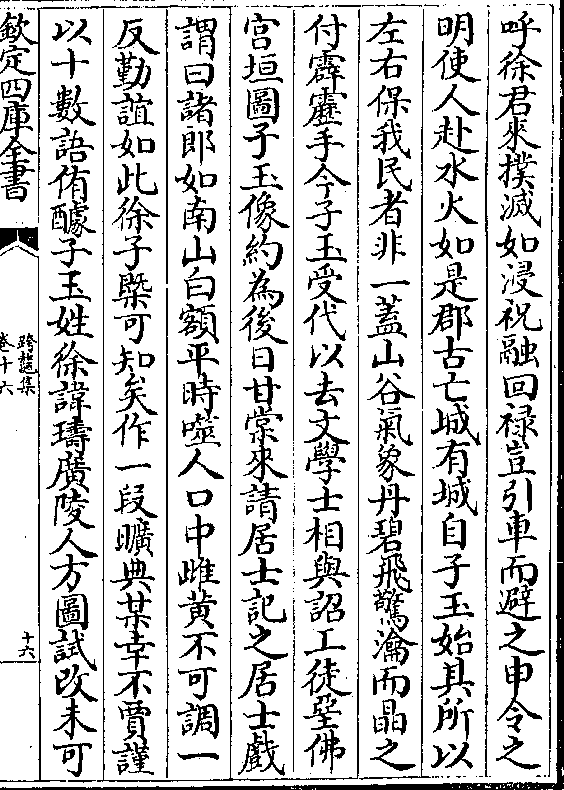 呼徐君來撲滅如浸祝融回祿豈引車而避之申令之
明使人赴水火如是郡古亡城有城自子玉始具所以
左右保我民者非一蓋山谷氣象丹碧飛驚瀹而晶之
付霹靂手今子玉受代以去文學士相與詔工徒堊佛
宫垣圖子玉像約為後日甘棠來請居士記之居士戲
謂曰諸郎如南山白額平時噬人口中雌黄不可調一
反勤誼如此徐子槩可知矣作一段曠典某幸不賈謹
以十數語侑醵子玉姓徐諱璹廣陵人方圖試改未可
欽定四庫全書
跨鼇集
卷十六
十六